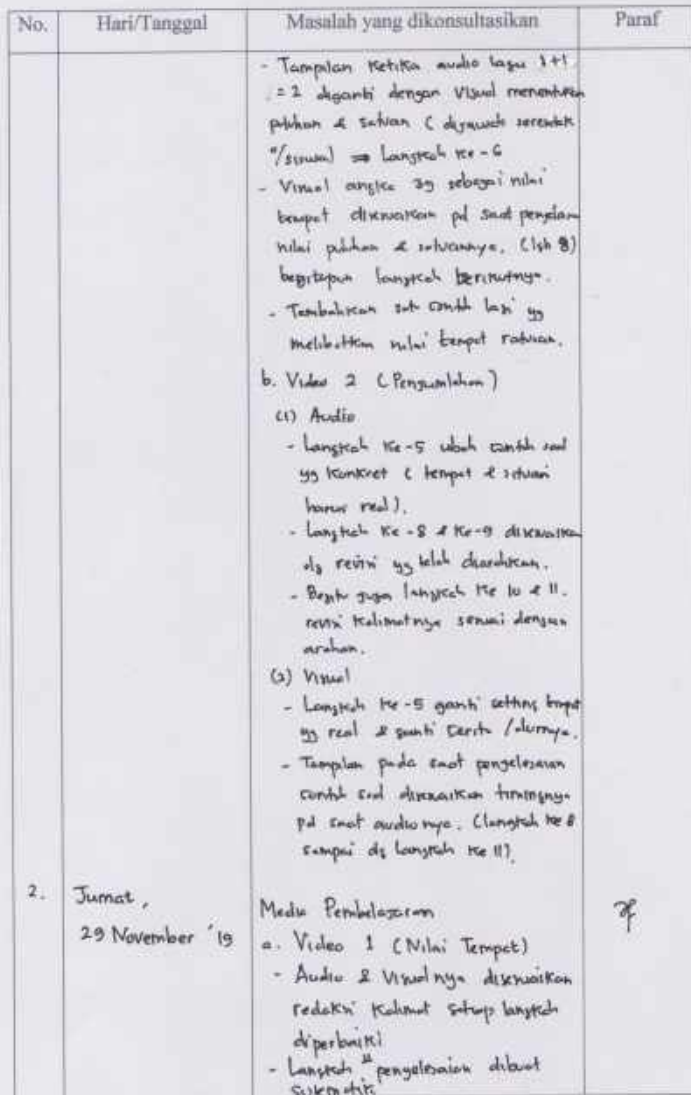 No. Hari/Tanggal Masalah yang dikonsultasikan Paraf
- Tampilan ketika audio lagu 1+1
= 2 diganti dengan Visual menentukan
puluhan & satuan ( dijawab serentak
"/siswa) ⇒ Langkah ke-6
- Visual angka yg sebagai nilai
tempat disesuaikan pd saat penjelasan
nilai puluhan & satuannya. (lgh 8)
begitupun langkah berikutnya.
- Tambahkan satu contoh lagi yg
melibatkan nilai tempat ratusan.
b. Video 2 (Penjumlahan)
(1) Audio
- Langkah ke-5 ubah contoh soal
yg konkret ( tempat & situasi
harus real).
- Langkah ke-8 & ke-9 disesuaikan
dg revisi yg telah diarahkan.
- Begitu juga langkah ke 10 & 11.
revisi kalimatnya sesuai dengan
arahan.
(2) Visual
- Langkah ke-5 ganti setting tempat
yg real & ganti cerita /alurnya.
- Tampilan pada saat pengelesaian
contoh soal disesuaikan timingnya
pd saat audionya. (langkah ke 8
sampai dg langkah ke 11).
2. Jumat, Media Pembelajaran
29 November '19 a. Video 1 (Nilai Tempat)
- Audio & Visualnya disesuaikan
redaksi kalimat setiap langkah
diperbaiki
- Langkah" pengelesaian dibuat
sistematis